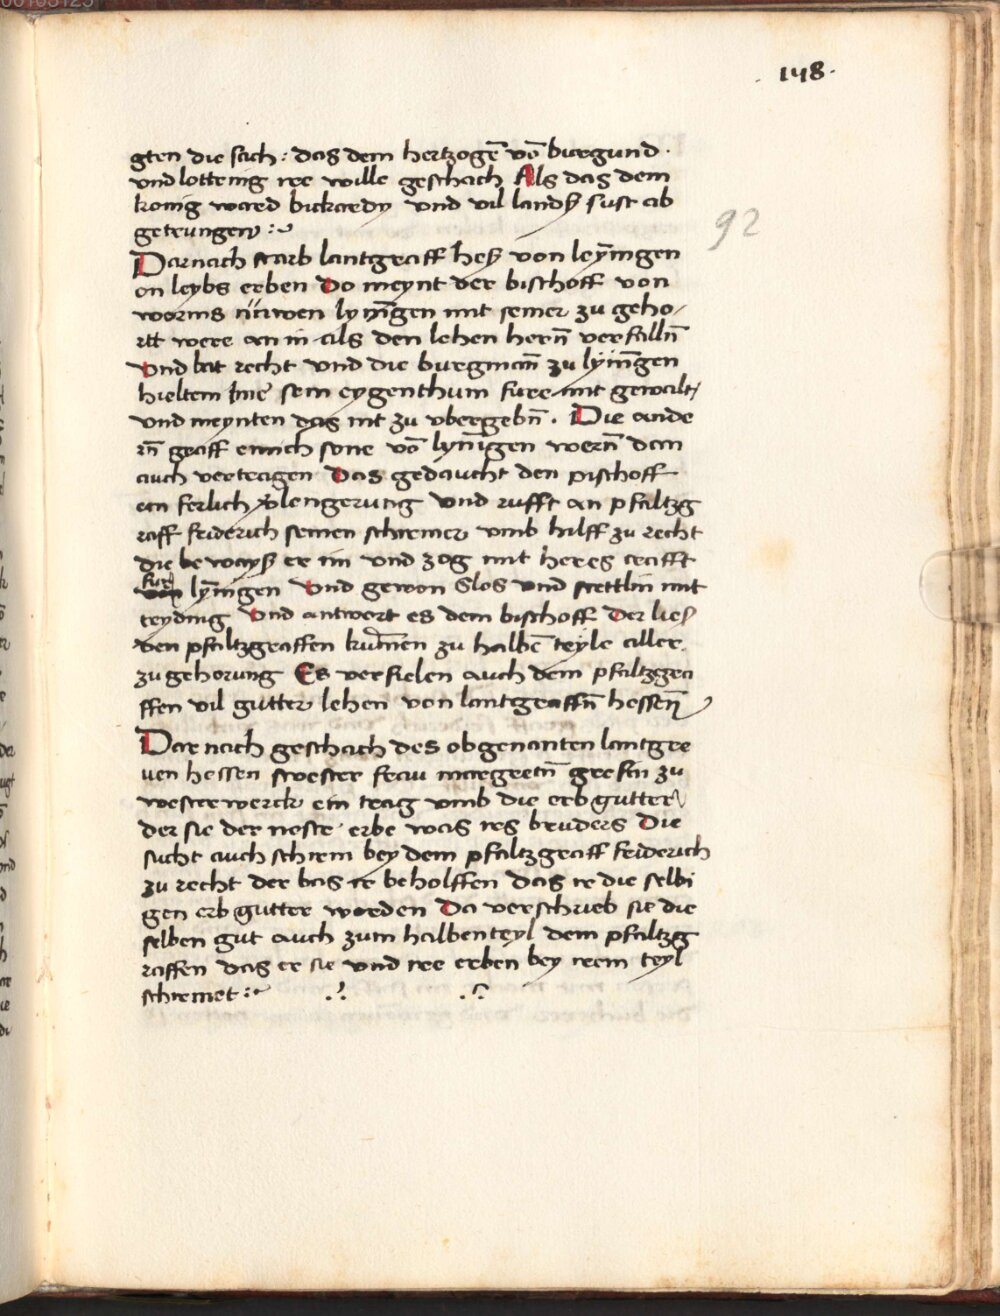 148.
gten die sach : das dem hertzogē vō burgund .
vnd lottring ire wille geschach Als das dem
konig ward bickardy vnd vil landß sust ab
getrungen :~
92
Darnach starb lantgraff heß von leyn̄ingen
on leybs erben Do meynt der bischoff von
worms nuwen lyn̄gen mit seiner zu geho/
rtt were an in als den lehen hern̄ verfalln̄
Vnd bat recht vnd die burgman̄ zu lyn̄ngen
hieltem Ime sein eygenthum fure mit gewalt/
vnd meynten das nit zu vbergebn̄ . Die ande
rn̄ graff emich sone vō lyn̄ingen wern̄ dan
auch vertragen Das gedaucht den pischoff
an ferlich v̓lengerung vnd rufft an pfaltzg
raff friderich seinen schirmer vmb hilff zu recht
die bewayß er im vnd zog mit heres crafft
fur lyn̄ingen Vnd gewon Slos vnd stettlin mit
teyding Vnd antwort es dem bischoff Der ließ
den pfaltzgraffen kum̄en zu halbē teyle aller
zugehorung Es verfielen auch dem pfaltzgra
ffen vil gutter lehen von lantgraffn̄ hessen̄
Dar nach geschach des obgenanten lantgra
uen hessen swester fraw margretn̄ grefin zu
westerwerck ein trag vmb die erbgutter
der sie der neste erbe was irs bruders Die
sucht auch schirm bey dem pfaltzgraff friderich
zu recht der bas ir beholffen das ir die selbi
gen erbgutter worden Da verschrieb sie die
selben gut auch zum halbenteyl dem pfaltzg
raffen das er sie vnd ire erben bey irem teyl
schirmet :~